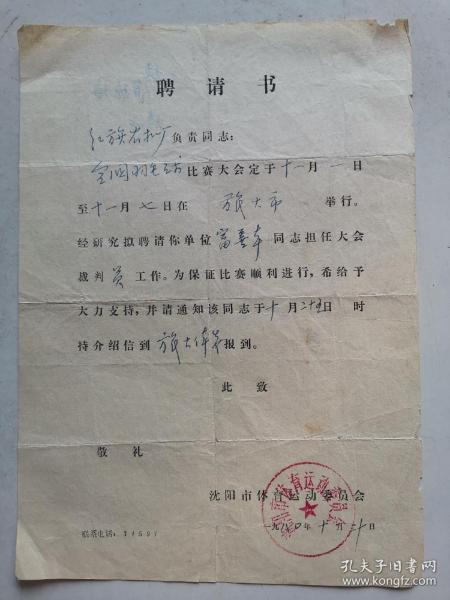 聘请书
红旗农机厂负责同志:
全国羽毛球比赛大会定于十一月一日
至十一月七日在 旅大市 举行。
经研究拟聘请你单位富善奉同志担任大会
裁判员工作。为保证比赛顺利进行,希给予
大力支持,并请通知该同志于十月二十五日 时
持介绍信到旅大体委报到。
此致
敬礼
沈阳市体育运动委员会
一九八〇年十月二十日
联系电话:
孔夫子旧书网